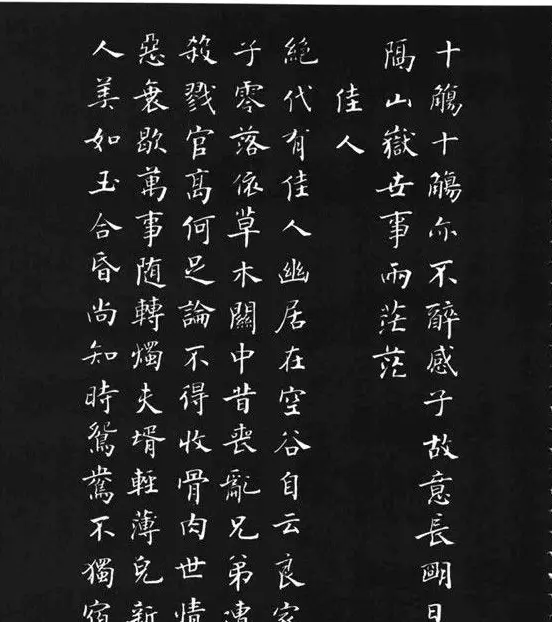 十觴十觴亦不醉感子故意長明日
隔山嶽世事兩茫茫
佳人
絶代有佳人幽居在空谷自云良家
子零落依草木關中昔喪亂兄弟遭
殺戮官髙何足論不得收骨肉世情
惡衰歇萬事随轉燭夫壻輕薄兒新
人美如玉合昏尚知時鴛鴦不獨宿